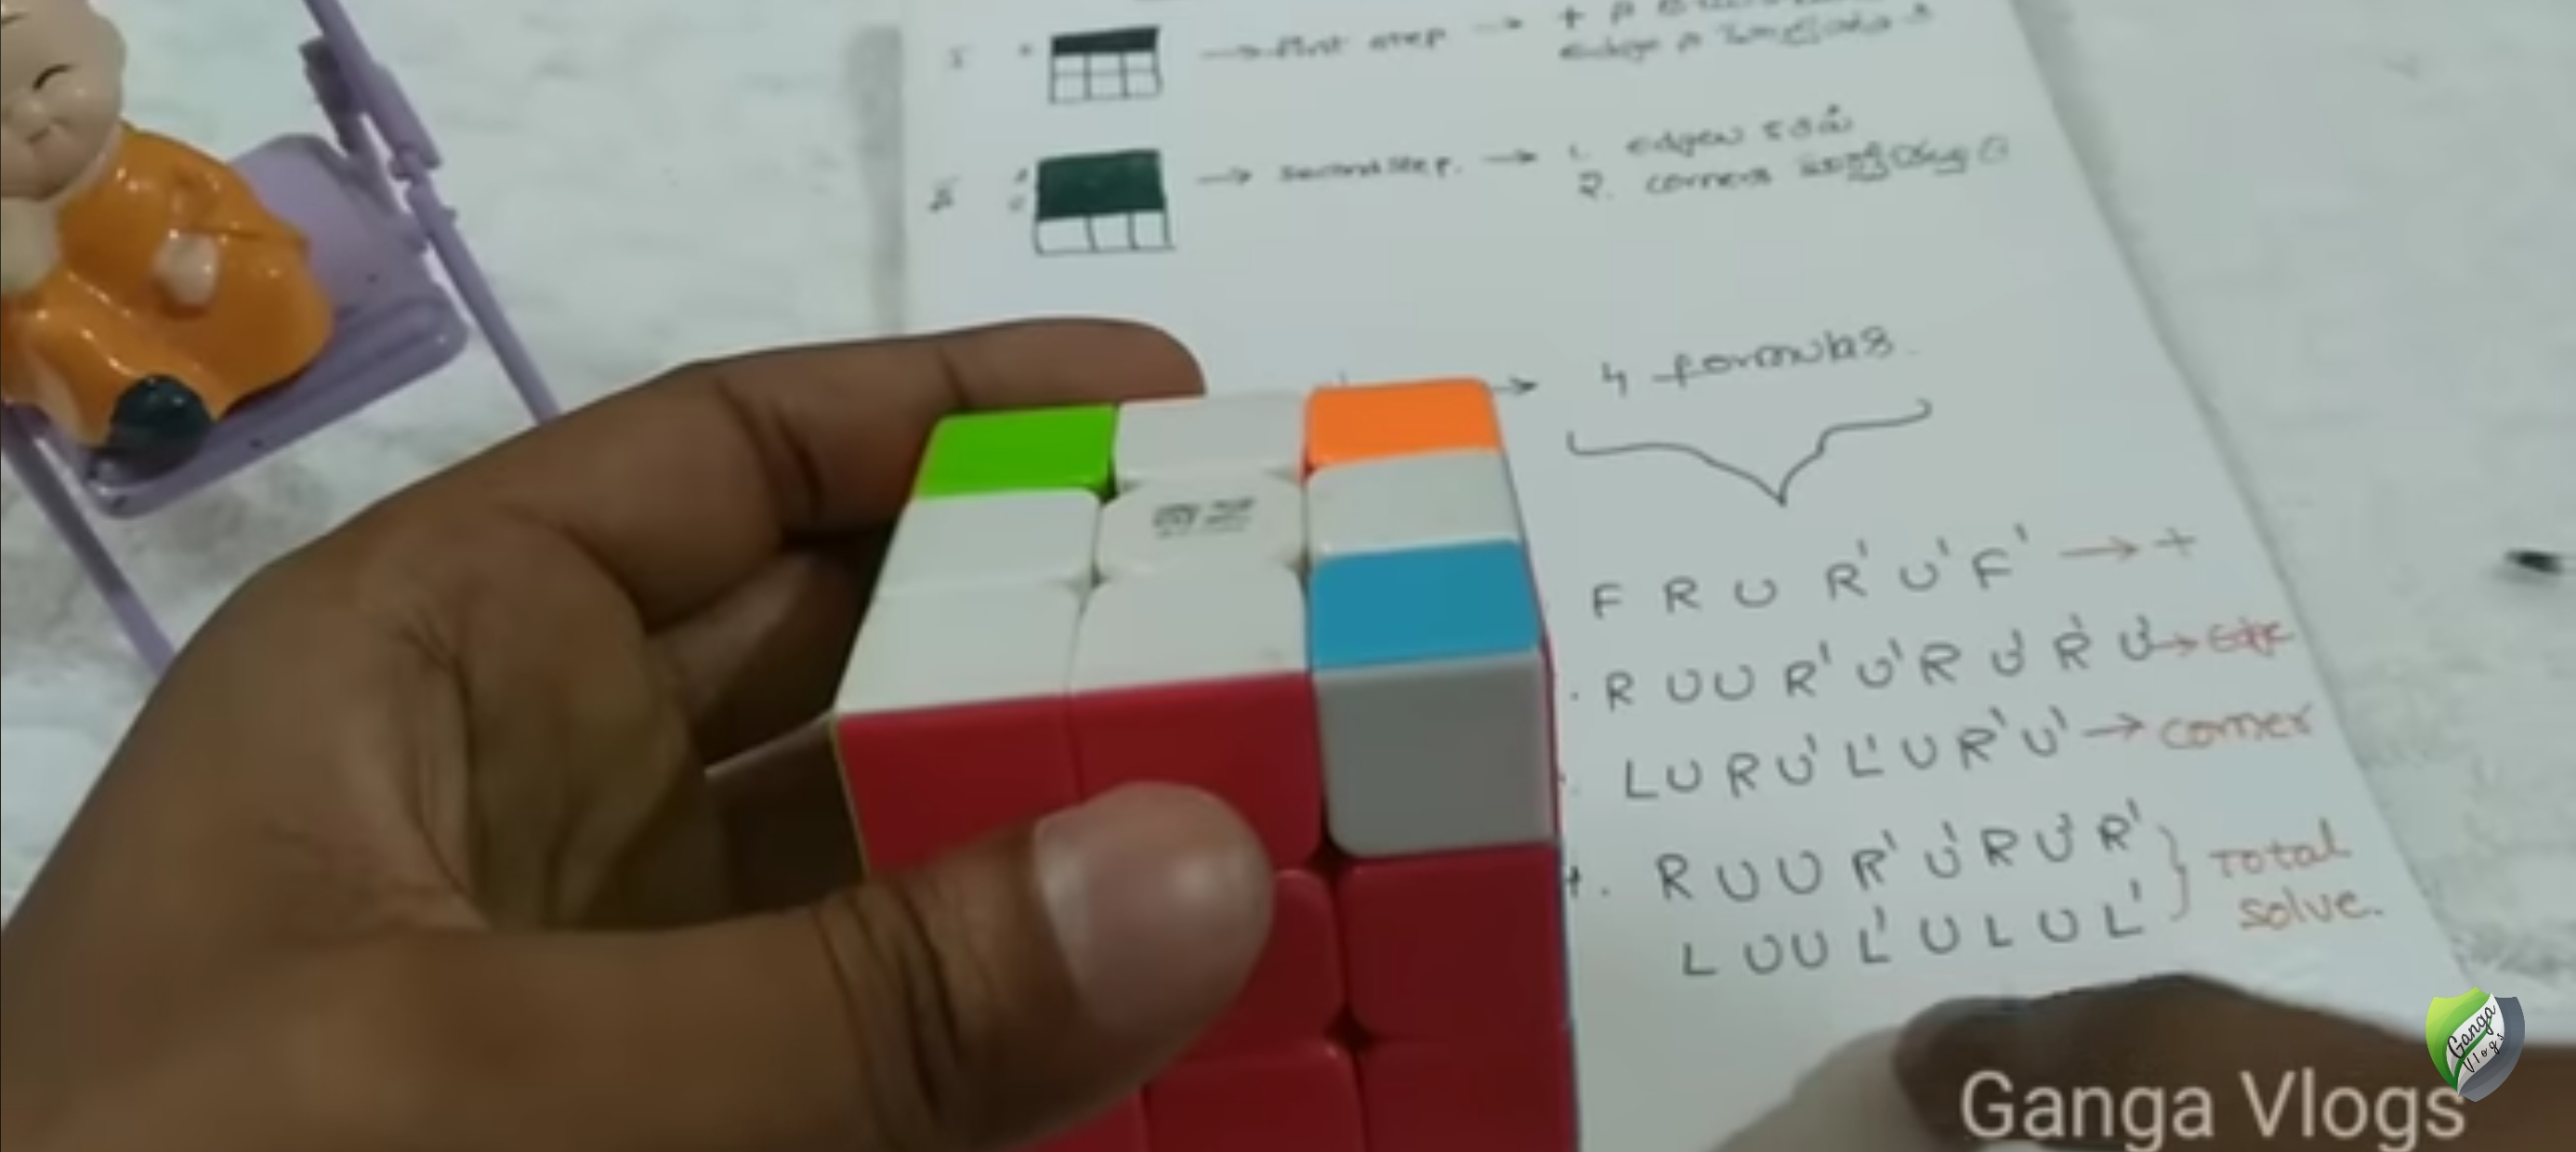 → first step → +
→ second step. → 1. edges
2. corners
→ 4 formulas.
F R U R' U' F' → +
. R U U R' U' R U' R' U' → Edge
L U R U' L' U R' U' → corner
4. R U U R' U' R U' R' } Total
L U U L' U L U L' solve.
Ganga Vlogs
Ganga Vlogs